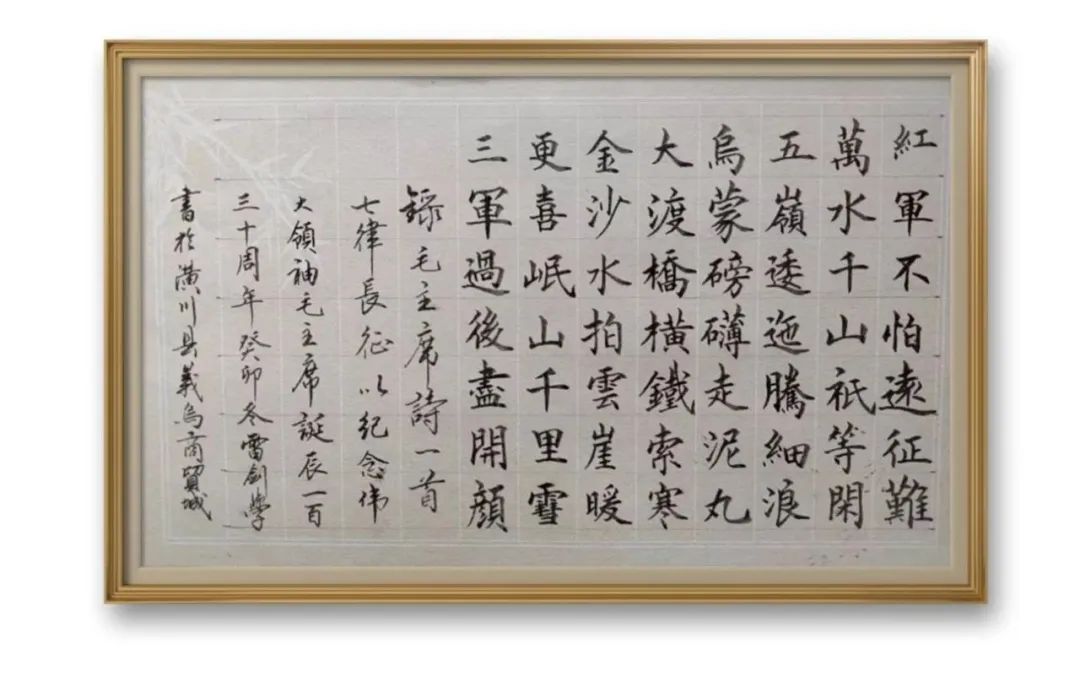 紅軍不怕遠征難
萬水千山衹等閑
五嶺逶迤騰細浪
烏蒙磅礴走泥丸
金沙水拍雲崖暖
大渡橋橫鐵索寒
更喜岷山千里雪
三軍過後盡開顏
錄毛主席詩一首
七律長征以紀念伟
大領袖毛主席誕辰一百
三十周年癸卯冬雷劍學
書於潢川县義烏商貿城